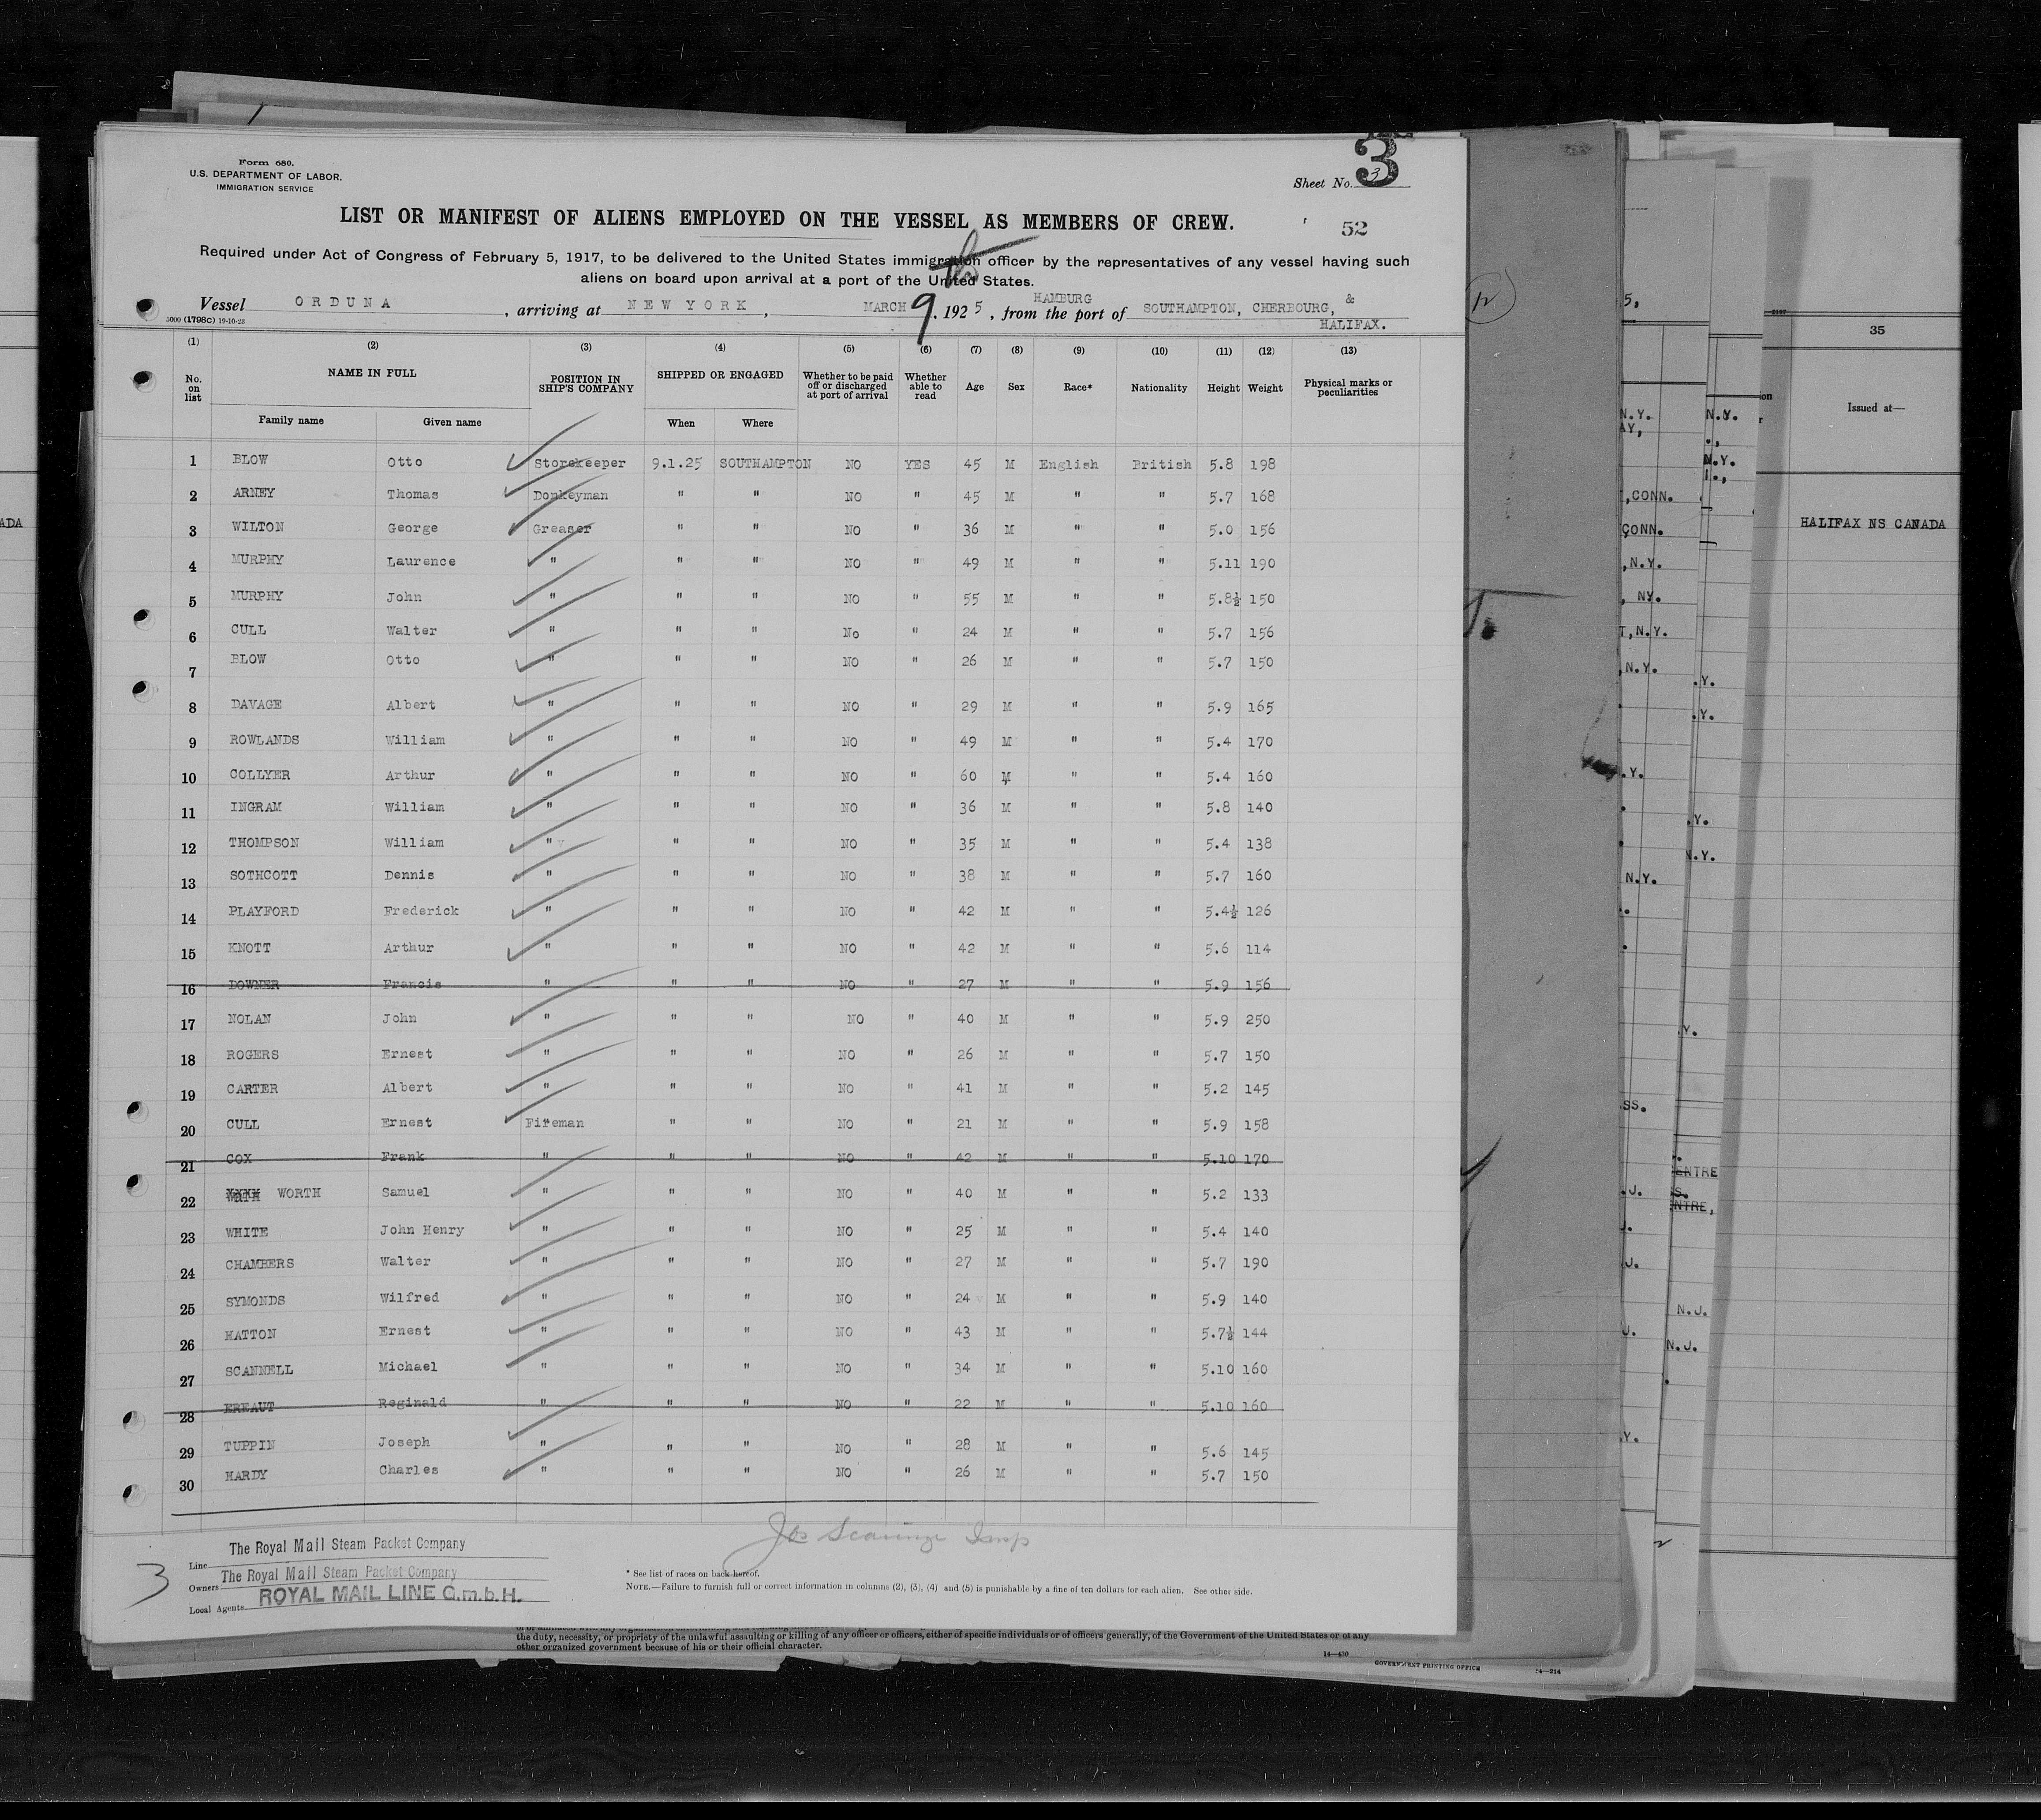 Form 680.
U.S. DEPARTMENT OF LABOR.
IMMIGRATION SERVICE
Sheet No. 3
3
52
LIST OR MANIFEST OF ALIENS EMPLOYED ON THE VESSEL AS MEMBERS OF CREW.
Required under Act of Congress of February 5, 1917, to be delivered to the United States immigration officer by the representatives of any vessel having such
aliens on board upon arrival at a port of the United States.
Vessel ORDUNA, arriving at NEW YORK, MARCH 9th, 1925, from the port of HAMBURG SOUTHAMPTON, CHERBOURG, & HALIFAX.
5000 (1798C) 19-10-23
(1) (2) (3) (4) (5) (6) (7) (8) (9) (10) (11) (12) (13)
No. on list NAME IN FULL POSITION IN SHIP'S COMPANY SHIPPED OR ENGAGED Whether to be paid off or discharged at port of arrival Whether able to read Age Sex Race* Nationality Height Weight Physical marks or peculiarities
Family name Given name When Where
1 BLOW Otto Storekeeper 9.1.25 SOUTHAMPTON NO YES 45 M English British 5.8 198
2 ARNEY Thomas Donkeyman " " NO " 45 M " " 5.7 168
3 WILTON George Greaser " " NO " 36 M " " 5.0 156
4 MURPHY Laurence " " " NO " 49 M " " 5.11 190
5 MURPHY John " " " NO " 55 M " " 5.8½ 150
6 CULL Walter " " " No " 24 M " " 5.7 156
7 BLOW Otto " " " NO " 26 M " " 5.7 150
8 DAVAGE Albert " " " NO " 29 M " " 5.9 165
9 ROWLANDS William " " " NO " 49 M " " 5.4 170
10 COLLYER Arthur " " " NO " 60 M " " 5.4 160
11 INGRAM William " " " NO " 36 M " " 5.8 140
12 THOMPSON William " " " NO " 35 M " " 5.4 138
13 SOTHCOTT Dennis " " " NO " 38 M " " 5.7 160
14 PLAYFORD Frederick " " " NO " 42 M " " 5.4½ 126
15 KNOTT Arthur " " " NO " 42 M " " 5.6 114
16 DOWNER Francis " " " NO " 27 M " " 5.9 156
17 NOLAN John " " " NO " 40 M " " 5.9 250
18 ROGERS Ernest " " " NO " 26 M " " 5.7 150
19 CARTER Albert " " " NO " 41 M " " 5.2 145
20 CULL Ernest Fireman " " NO " 21 M " " 5.9 158
21 COX Frank " " " NO " 42 M " " 5.10 170
22 WORTH Samuel " " " NO " 40 M " " 5.2 133
23 WHITE John Henry " " " NO " 25 M " " 5.4 140
24 CHAMBERS Walter " " " NO " 27 M " " 5.7 190
25 SYMONDS Wilfred " " " NO " 24 M " " 5.9 140
26 HATTON Ernest " " " NO " 43 M " " 5.7½ 144
27 SCANNELL Michael " " " NO " 34 M " " 5.10 160
28 EREAUT Reginald " " " NO " 22 M " " 5.10 160
29 TUPPIN Joseph " " " NO " 28 M " " 5.6 145
30 HARDY Charles " " " NO " 26 M " " 5.7 150
3
Line The Royal Mail Steam Packet Company
Owners The Royal Mail Steam Packet Company
Local Agents ROYAL MAIL LINE G.m.b.H.
* See list of races on back hereof.
NOTE.—Failure to furnish full or correct information in columns (2), (3), (4) and (5) is punishable by a fine of ten dollars for each alien. See other side.
the duty, necessity, or propriety of the unlawful assaulting or killing of any officer or officers, either of specific individuals or of officers generally, of the Government of the United States or of any
other organized government because of his or their official character.
14—430
GOVERNMENT PRINTING OFFICE
35
Issued at—
HALIFAX NS CANADA
N.Y.
N.Y.
N.Y.
,CONN.
CONN.
,N.Y.
, NY.
,N.Y.
N.Y.
N.Y.
N.Y.
N.J.
N.J.